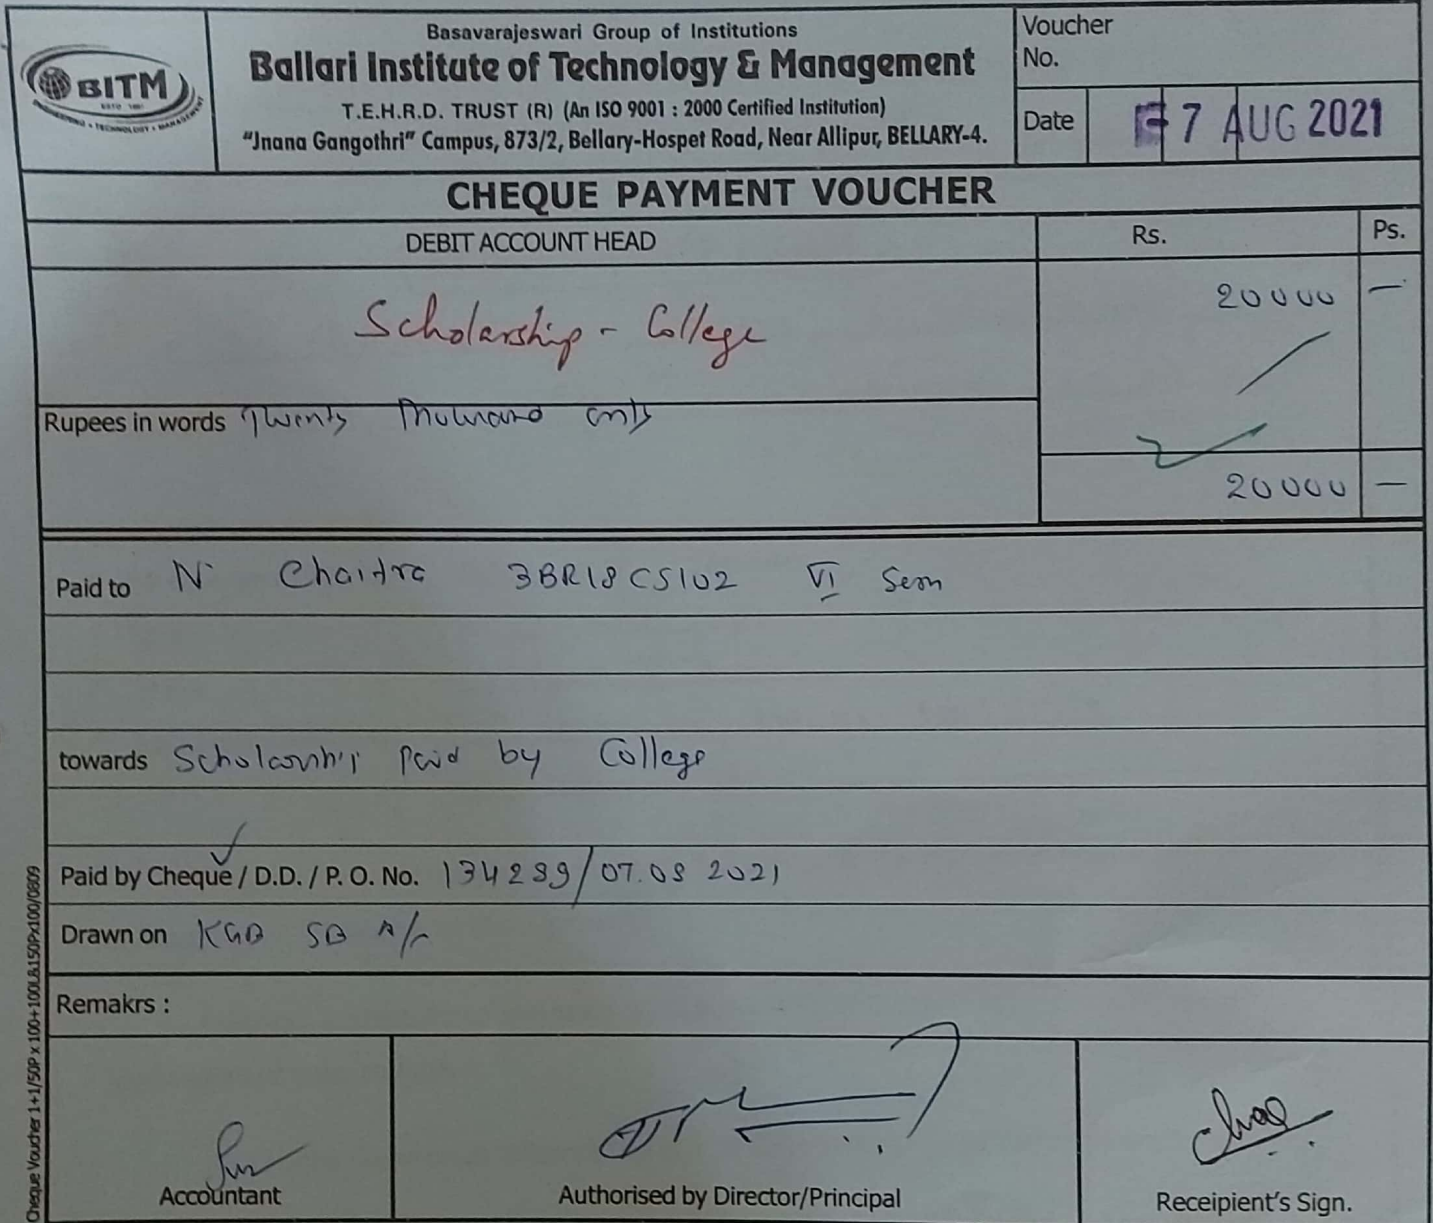 Basavarajeswari Group of Institutions
Ballari Institute of Technology & Management
T.E.H.R.D. TRUST (R) (An ISO 9001 : 2000 Certified Institution)
"Jnana Gangothri" Campus, 873/2, Bellary-Hospet Road, Near Allipur, BELLARY-4.
BITM
ESTD 1997
ENGINEERING • TECHNOLOGY • MANAGEMENT
Voucher
No.
Date 7 AUG 2021
CHEQUE PAYMENT VOUCHER
DEBIT ACCOUNT HEAD Rs. Ps.
Scholarship - College 20000 —
Rupees in words Twenty Thousand only
20000 —
Paid to N Chaitra 3BR18CS102 VI Sem
towards Scholarshi Paid by College
Paid by Cheque / D.D. / P. O. No. 134289/07.08 2021
Drawn on KGB SB A/c
Remakrs :
Accountant
Authorised by Director/Principal
Receipient's Sign.
Cheque Voucher 1+1/50P x 100+100L&150Px100/0809